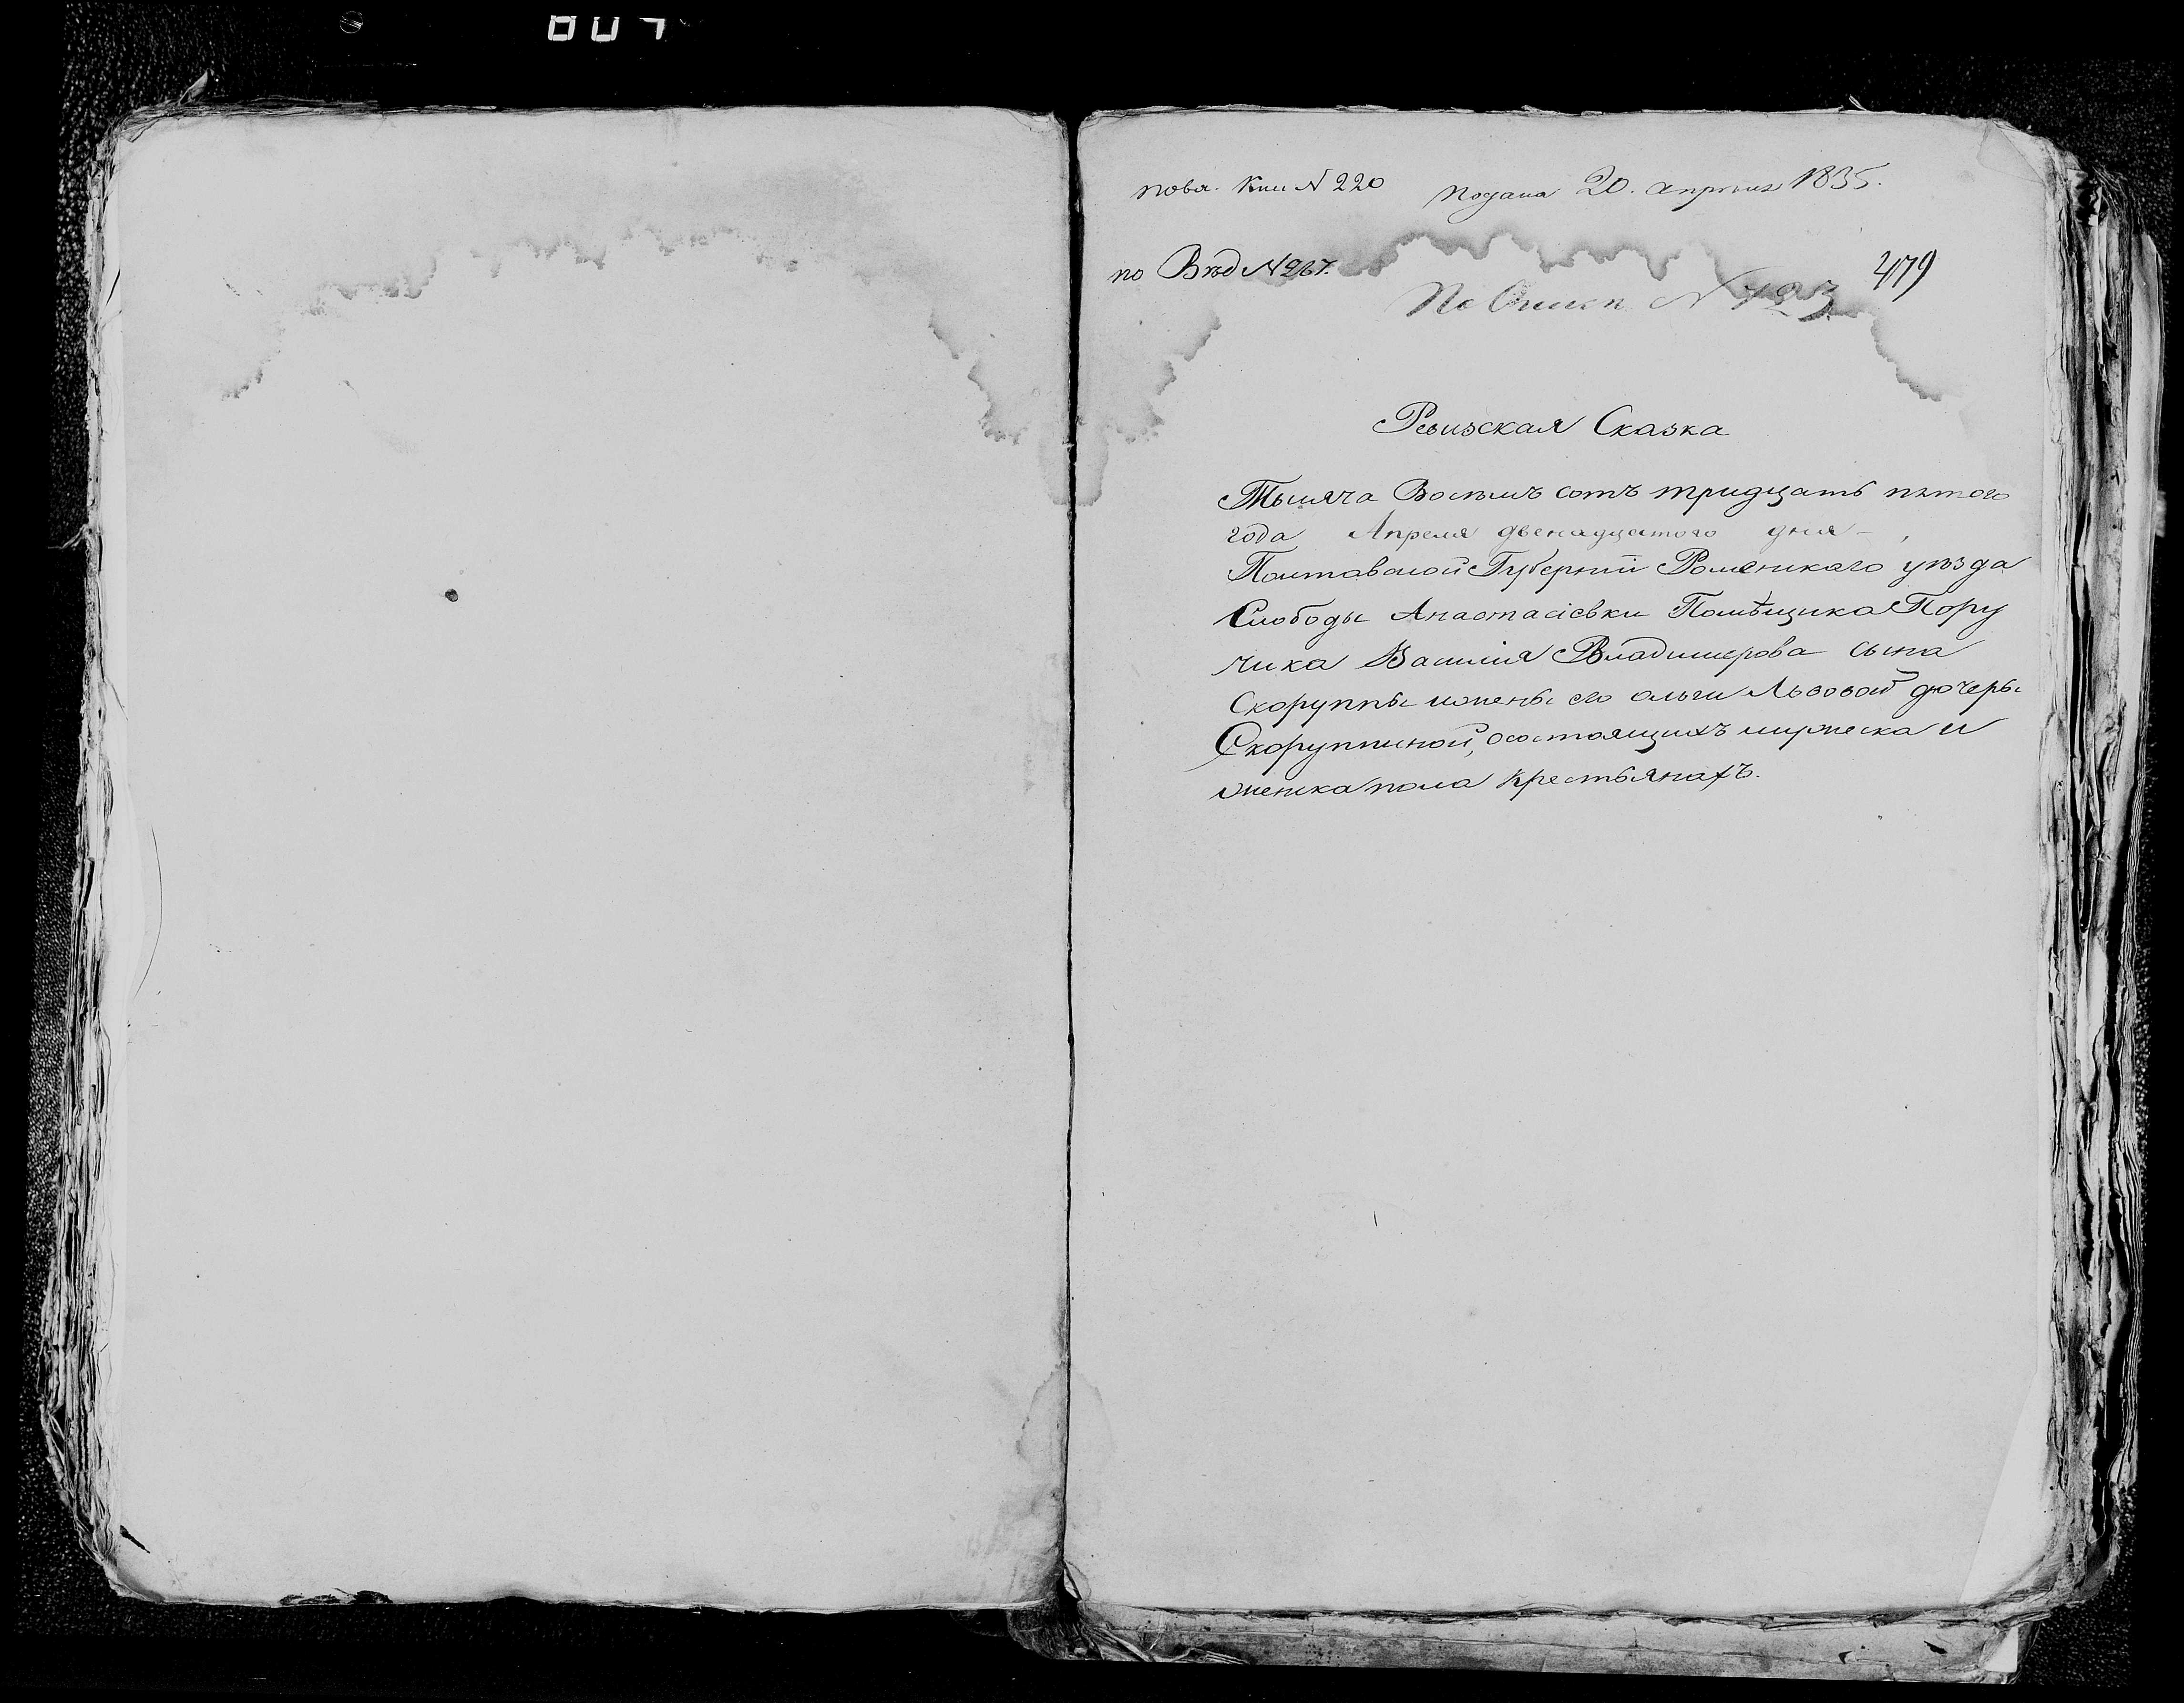 по вх. Кни N 220 Подана 20. апреля 1835.
по Вѣд N 267.
479
По Описи N 123
Ревизская Сказка
Тысяча Восемь сотъ тридцать пятого
года Апреля двенадцатого дня
Полтавской Губерніи Роменскаго уѣзда
Слободы Анастасіевки Помѣщика Пору
чика Василія Владимерова сына
Скоруппы ижены его ольги Львовой дочеры
Скоруппиной, осостоящихъ мужеска и
женска пола крестьянахъ.